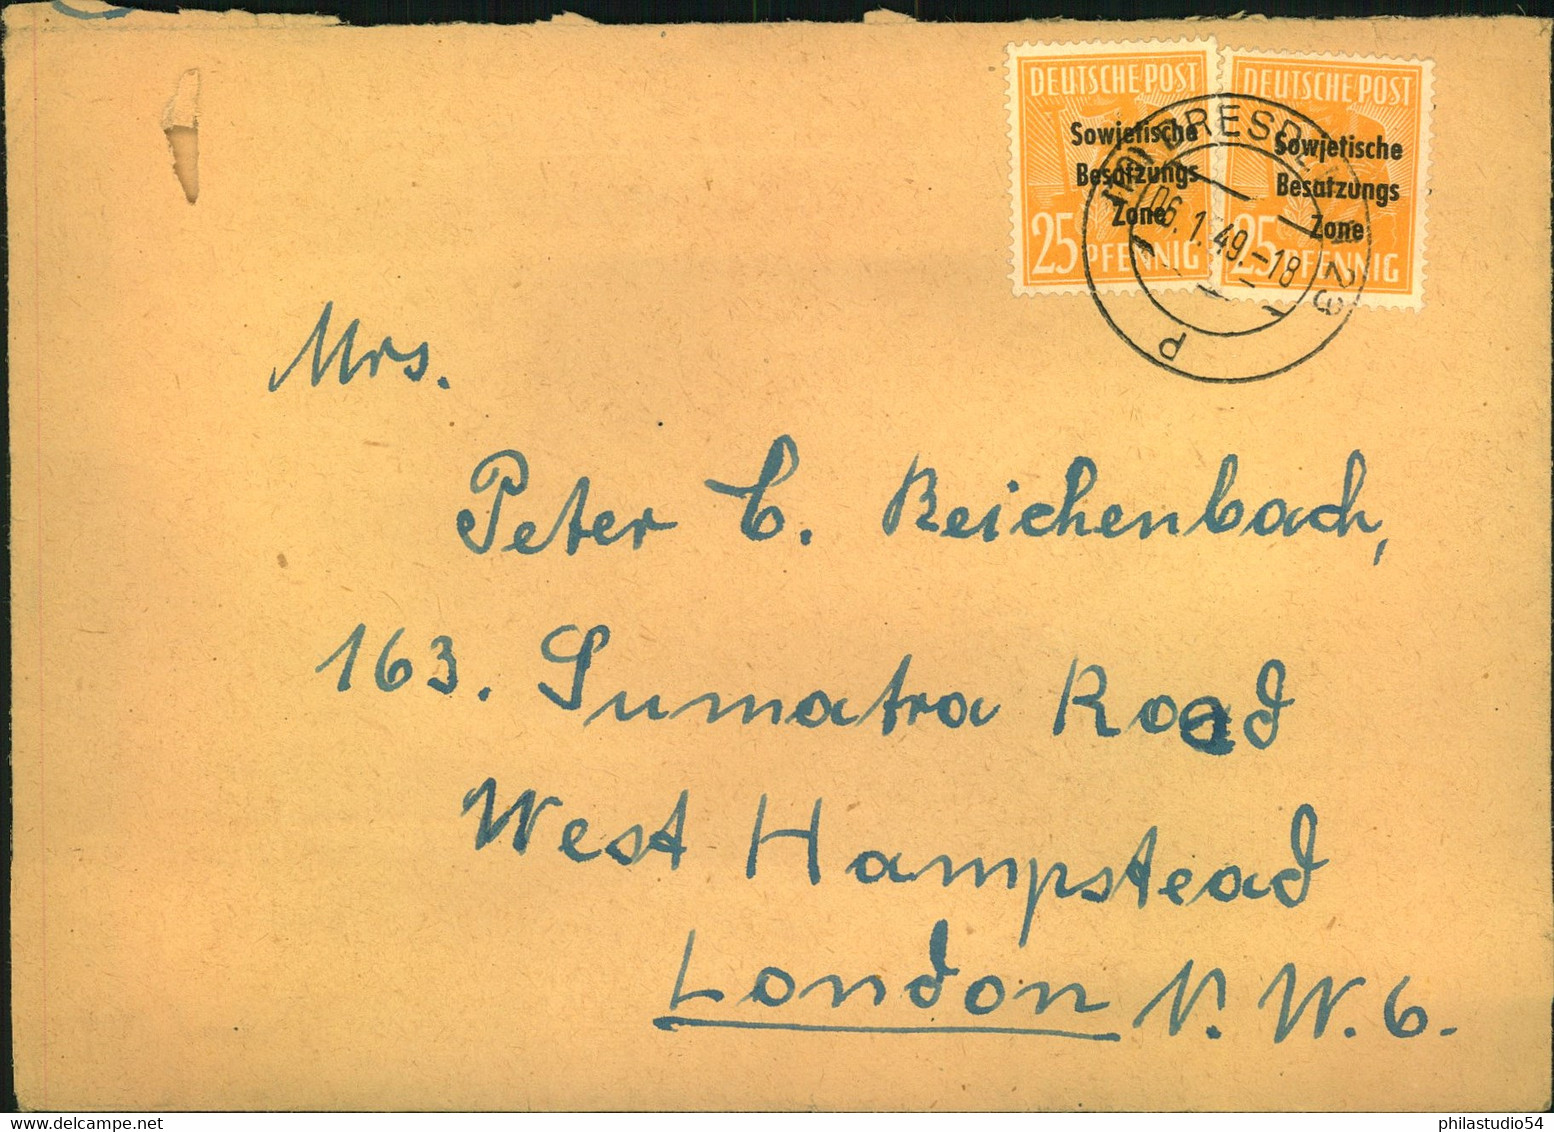 DEUTSCHE POST
Sowjetische
Besatzungs
Zone
25 PFENNIG
DEUTSCHE POST
Sowjetische
Besatzungs
Zone
25 PFENNIG
DRESDEN
06.1.49.-18
P
Mrs.
Peter C. Reichenbach,
163. Sumatra Road
West Hampstead
London N.W.6.
philastudio54